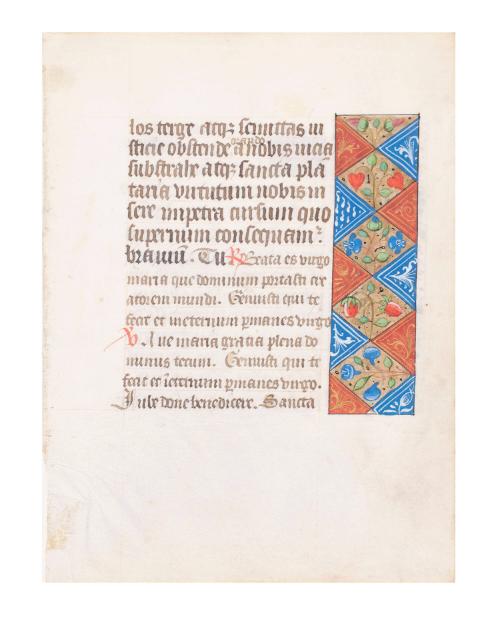 los terge atq; semitas iu
sticie obstende a nobis uicia
orando
substrahe atq; sancta plā
taria virtutum nobis in
sere impetra cursum quo
supernum consequam᷑
brauiū. Tu R Beata es virgo
maria que dominum portasti cre
atorem mundi. Genuisti qui te
fecit et ineternum pmanes virgo
V. Aue maria gracia plena do
minus tecum. Genuisti qui te
fecit et īeternum pmanes virgo.
Iube done benedicere. Sancta